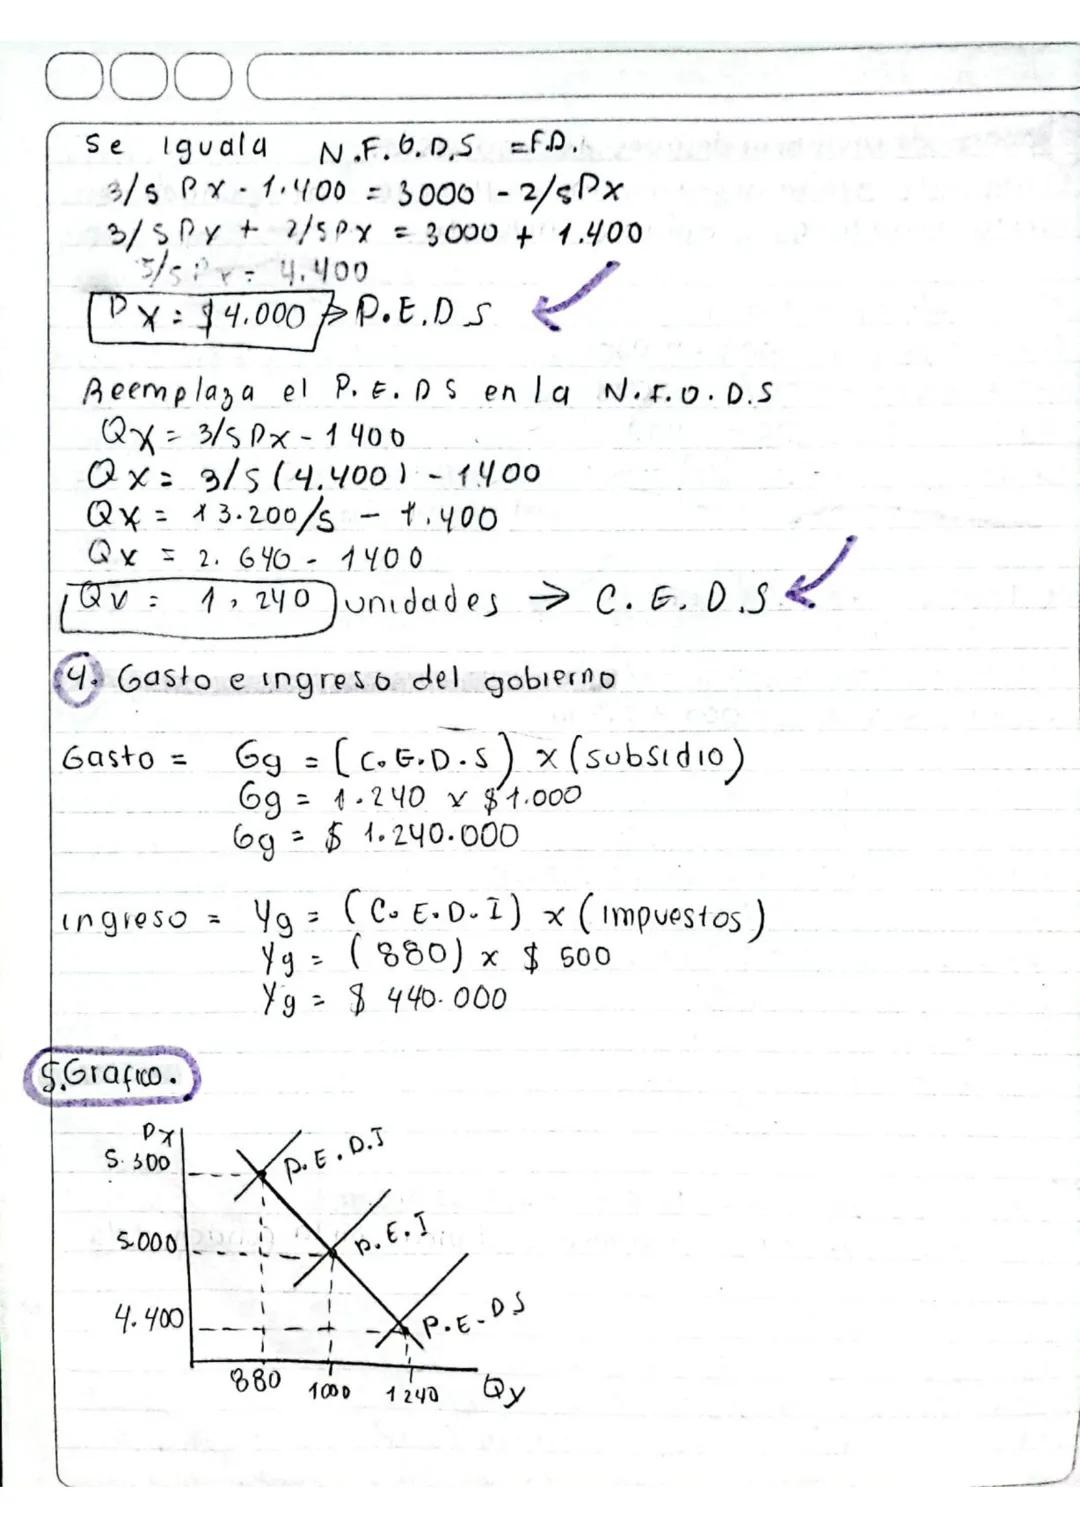 Se iguala N.F.O.D.S = F.D.
3/5 Px - 1.400 = 3000 - 2/5Px
3/5Px + 2/5Px = 3000 + 1.400
5/5Px = 4.400
Px = $4.000 → P.E.D S
Reemplaza el P.E.DS en la N.F.O.D.S
Qx = 3/5 Px - 1400
Qx = 3/5 (4.400) - 1400
Qx = 13.200/5 - 1.400
Qx = 2.640 - 1400
Qx = 1,240 unidades → C.E.D.S
4. Gasto e ingreso del gobierno
Gasto = Gg = (C.E.D.S) x (subsidio)
Gg = 1.240 x $1.000
Gg = $ 1.240.000
ingreso = Yg = (C.E.D.I) x (impuestos)
Yg = (880) x $ 500
Yg = $ 440.000
5.Grafico.
Px
5.300
P.E.D.I
5.000
P.E.I
4.400
P.E.DS
880 1000 1240 Qx